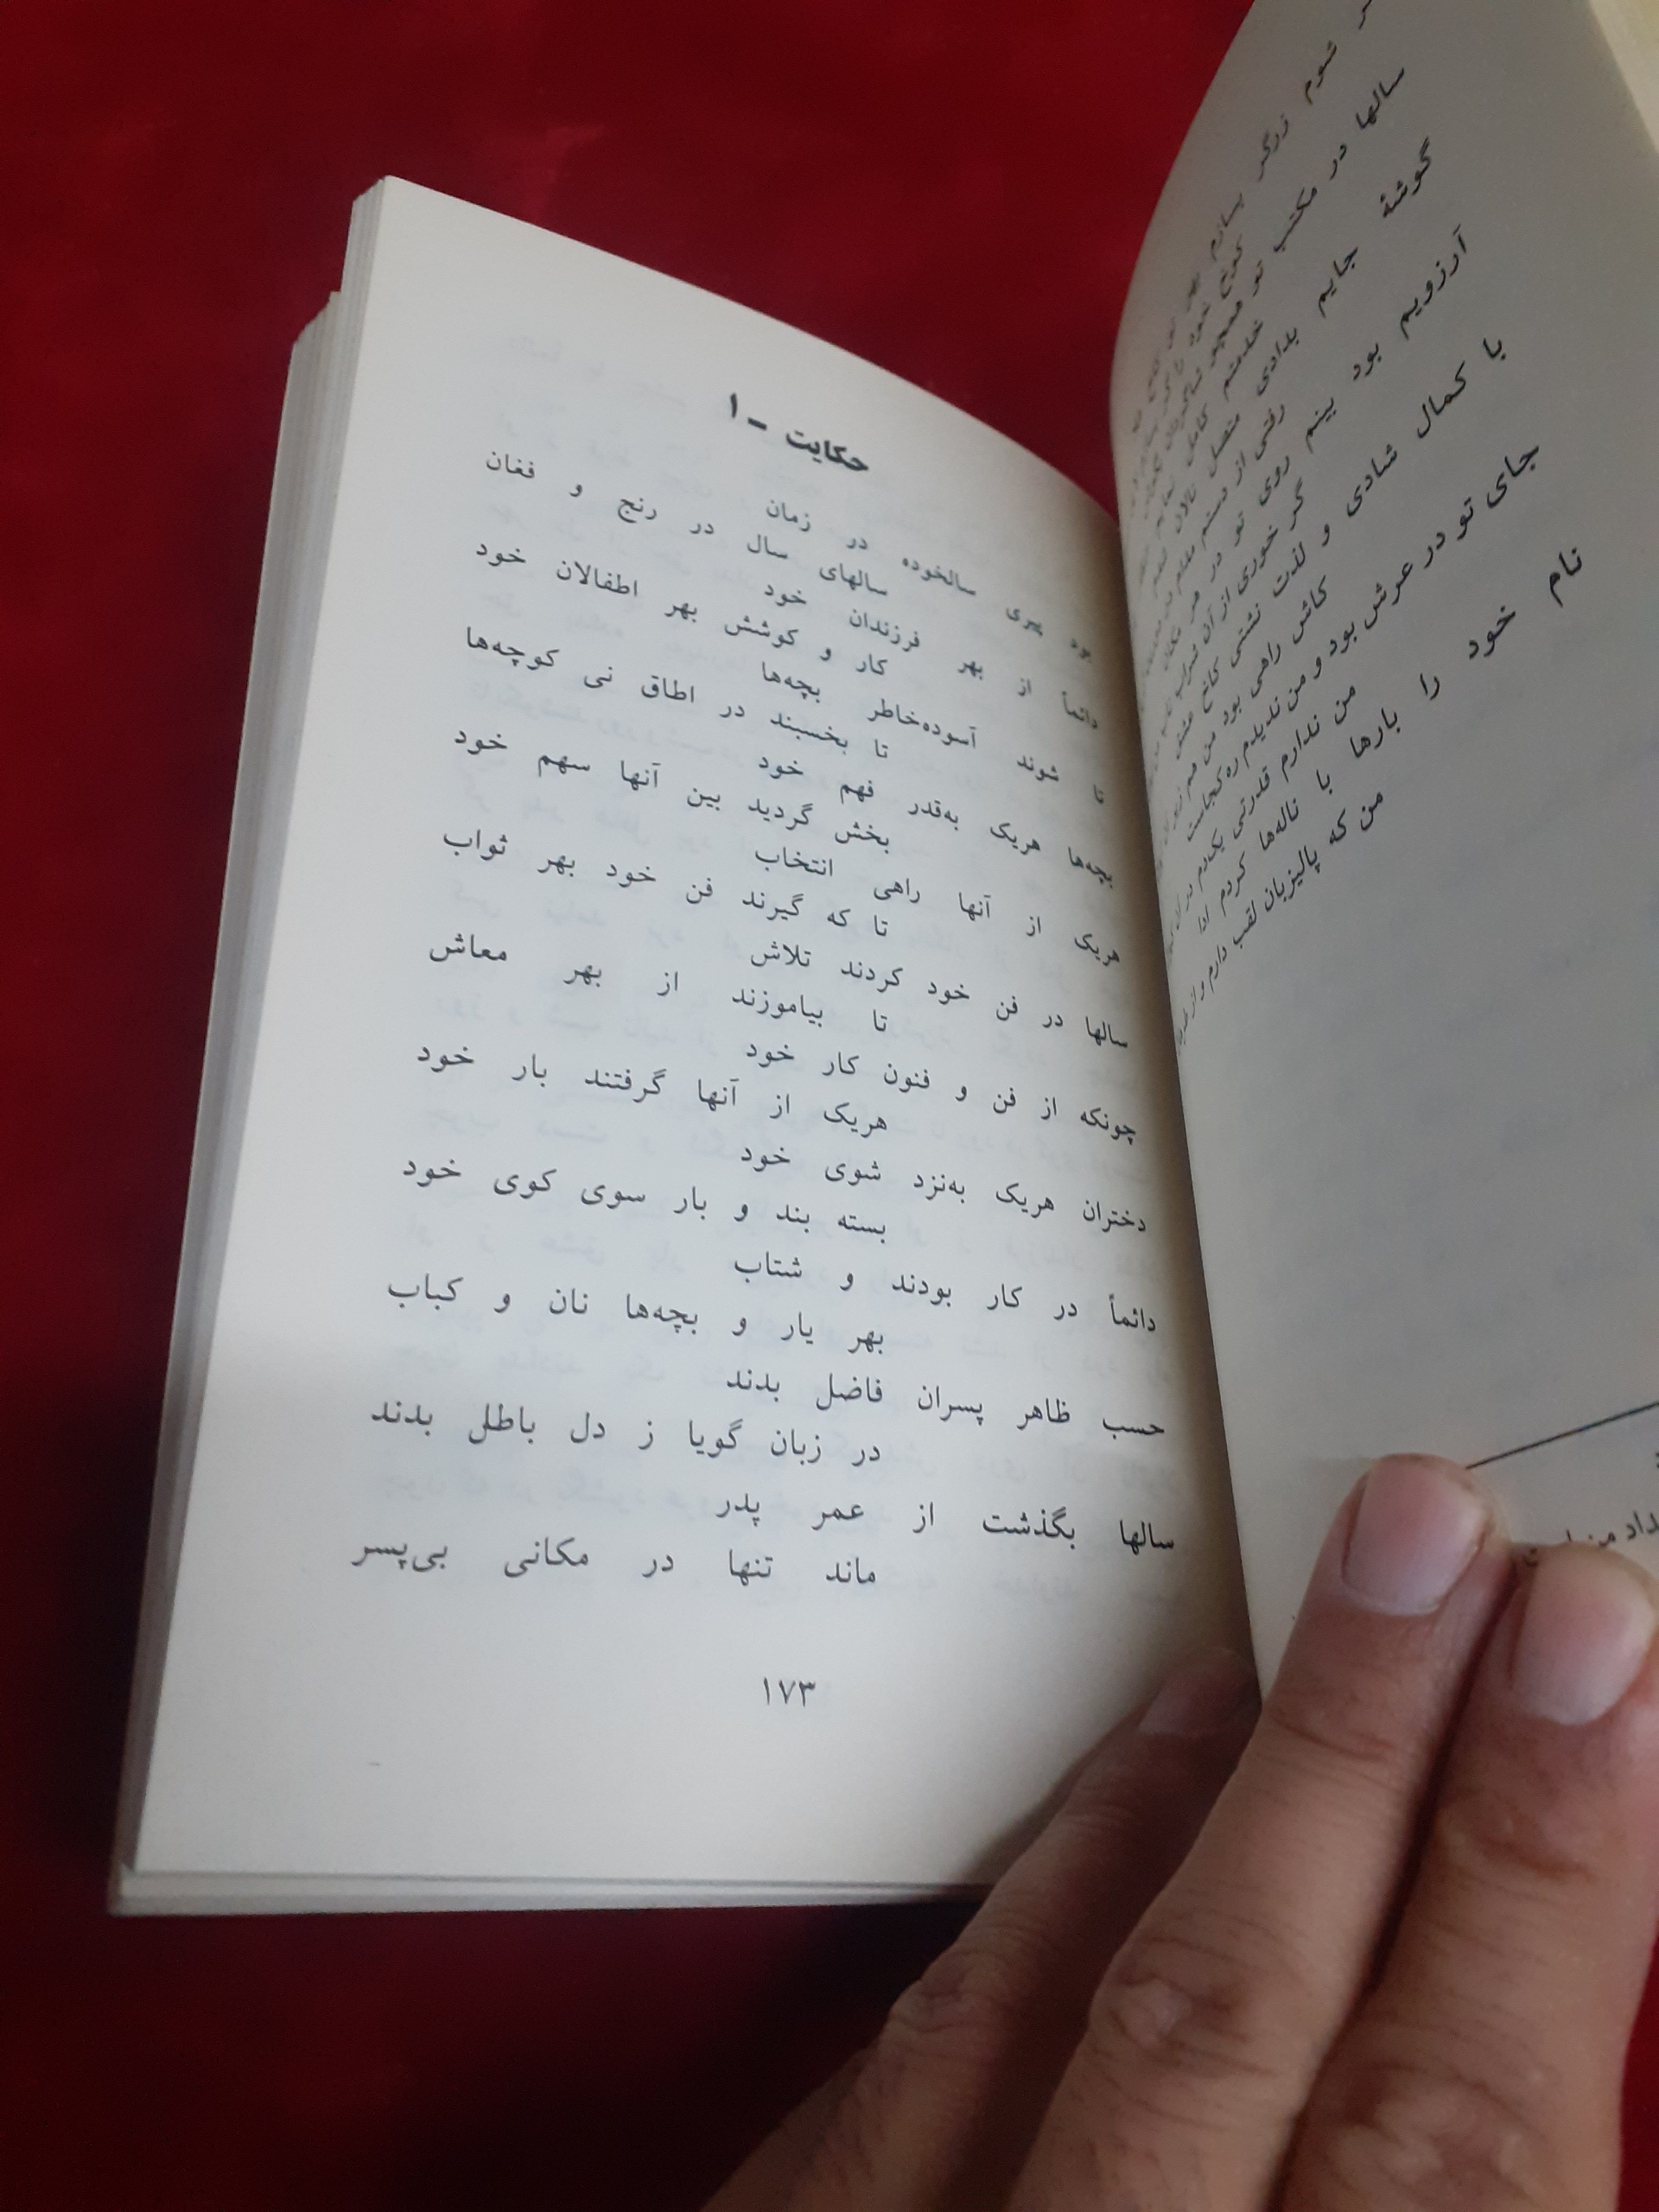 حکایت - ۱
بود پیری سالخوده در زمان
سالهای سال در رنج و فغان
دائماً از بهر فرزندان خود
کار و کوشش بهر اطفالان خود
تا شوند آسوده‌خاطر بچه‌ها
تا بخسبند در اطاق نی کوچه‌ها
بچه‌ها هریک به‌قدر فهم خود
بخش گردید بین آنها سهم خود
هریک از آنها راهی انتخاب
تا که گیرند فن خود بهر ثواب
سالها در فن خود کردند تلاش
تا بیاموزند از بهر معاش
چونکه از فن و فنون کار خود
هریک از آنها گرفتند بار خود
دختران هریک به‌نزد شوی خود
بسته بند و بار سوی کوی خود
دائماً در کار بودند و شتاب
بهر یار و بچه‌ها نان و کباب
حسب ظاهر پسران فاضل بدند
در زبان گویا ز دل باطل بدند
سالها بگذشت از عمر پدر
ماند تنها در مکانی بی‌پسر
۱۷۳
شوم زرگر بسازم بهر تو
سالها در مکتب تو همچو
گوشهٔ جایم بدادی
آرزویم بود بینم روی تو در هر مکان
گر خوری از آن شراب
با کمال شادی و لذت نشتی کاخ عشق
کاش راهی بود من هم
جای تو در عرش بود و من ندیدم ره کجاست
من ندارم قدرتی یکدم
نام خود را بارها با ناله‌ها کردم ادا
من که پالیزبان لقب دارم و از